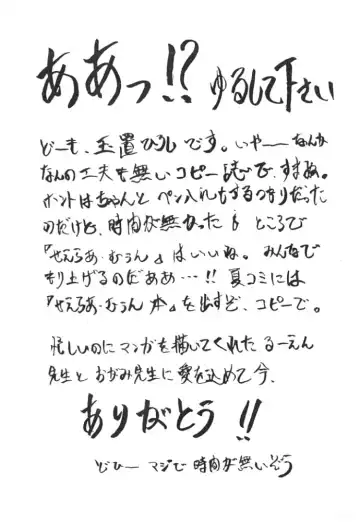 ああっ!? ゆるして下さい
どーも、玉置ひろしです。いやーなんか
なんの工夫も無いコピー誌で、すまぬ。
ホントはちゃんとペン入れもするつもりだった
のだけど、時間が無かった。ところで
『せえらあ・むうん』はいいね。みんなで
もり上げるのだああ…!! 夏コミには
『せえらあ・むうん本』を出すぞ、コピーで。
忙しいのにマンガを描いてくれたるーえん
先生とおがみ先生に愛を込めて今、
ありがとう!!
どひー マジで時間が無いぞう